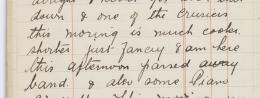 down & one of the cruisers
this morning is much cooler
shorter just fancy I am here
this afternoon passed away
band. & also some Piano